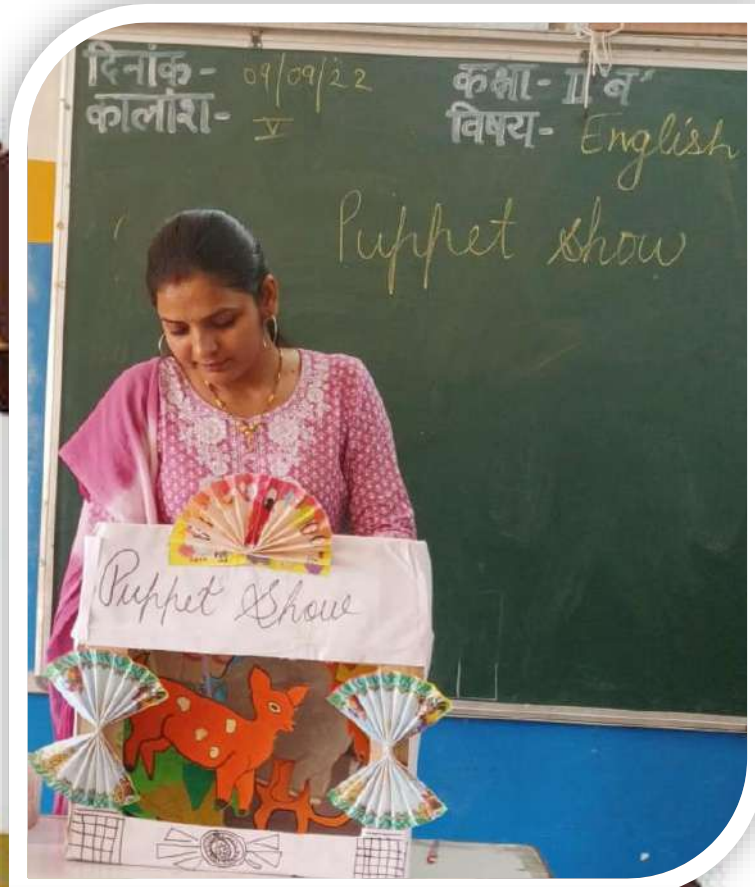 दिनांक- 09/09/22
कालांश- V
कक्षा- II "ब"
विषय- English
Puppet show
Puppet Show